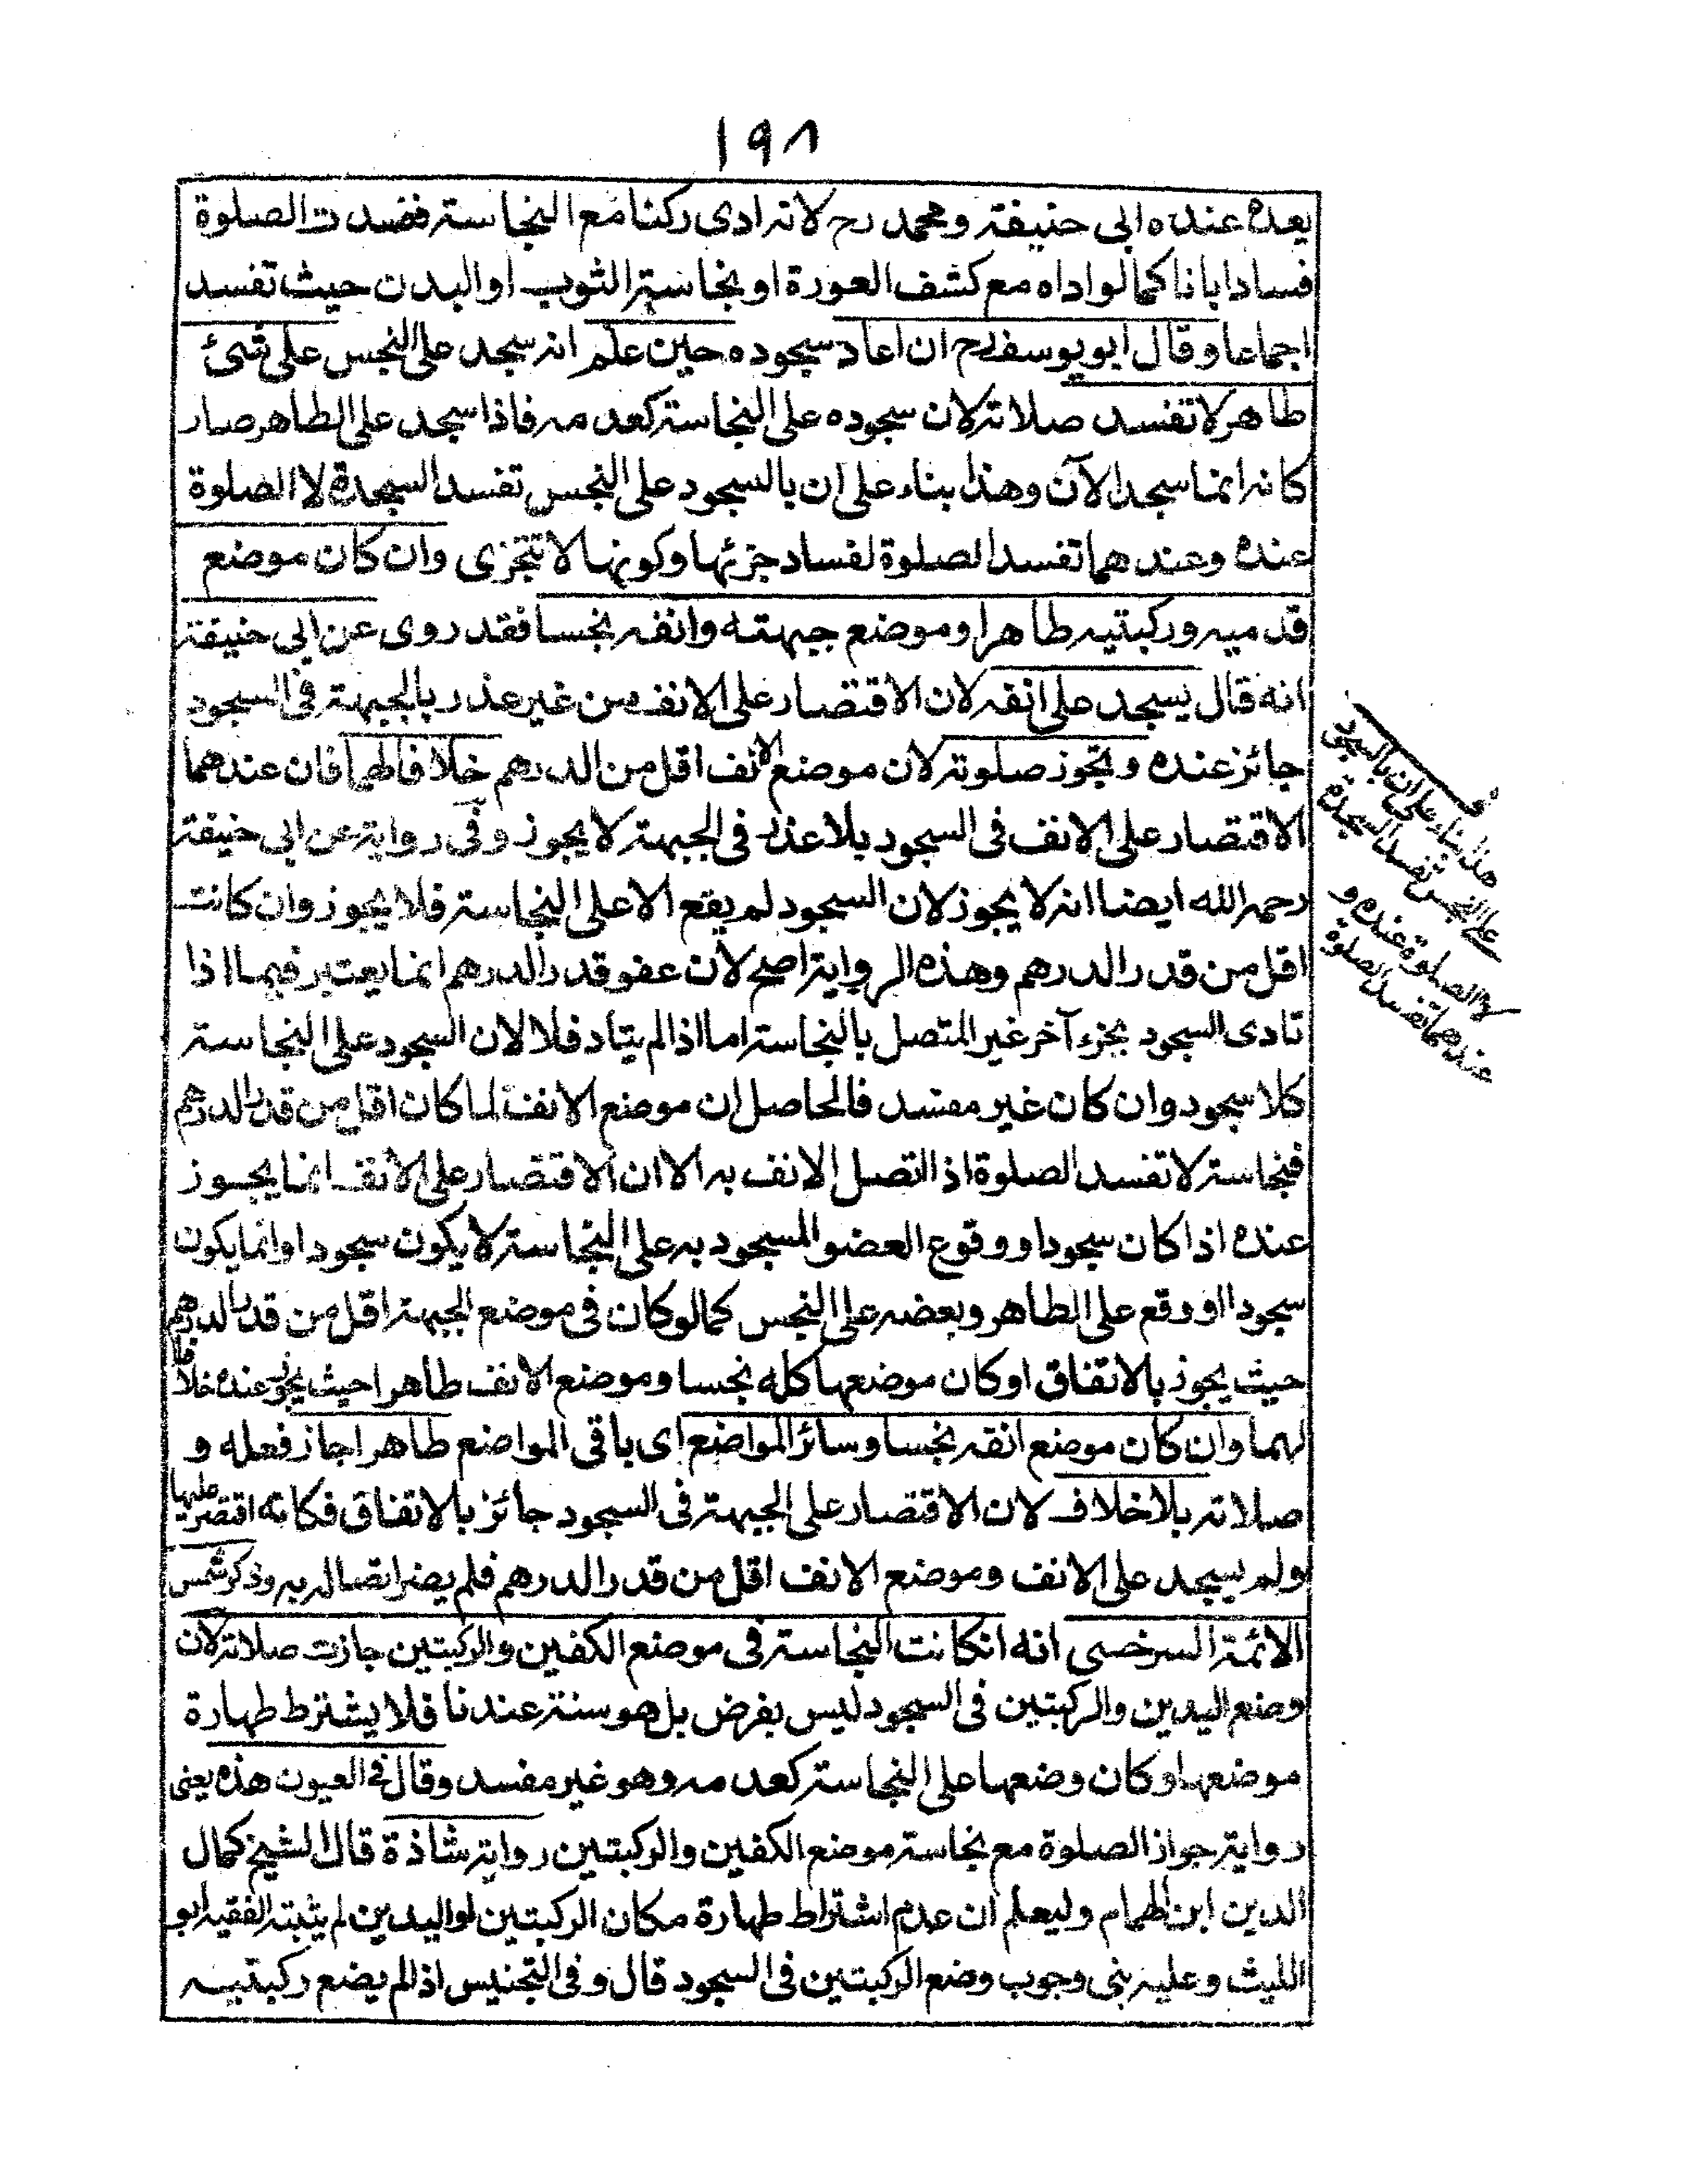 ١٩٨
بعده عنده ابى حنيفة ومحمد رح لانه ادى ركنا مع النجاسة ففسدت الصلوة
فسادا باتا كما لو اداه مع كشف العورة او نجاسة الثوب او البدن حيث تفسد
اجماعا وقال ابو يوسف رح ان اعاد سجوده حين علم انه سجد على النجس على شئ
طاهر لا تفسد صلاته لان سجوده على النجاسة كعدمه فاذا سجد على الطاهر صار
كانه انما سجد الآن وهذا بناء على ان بالسجود على النجس تفسد السجدة لا الصلوة
عنده وعندهما تفسد الصلوة لفساد جزئها وكونها لا تتجزى وان كان موضع
قدميه وركبتيه طاهرا وموضع جبهته وانفه نجسا فقد روى عن ابى حنيفة
انه قال يسجد على انفه لان الاقتصار على الانف من غير عذر بالجبهة فى السجود
جائز عنده وتجوز صلوته لان موضع الانف اقل من الدرهم خلافا لهما فان عندهما
الاقتصار على الانف فى السجود بلا عذر فى الجبهة لا يجوز وفى رواية عن ابى حنيفة
رحمه الله ايضا انه لا يجوز لان السجود لم يقع الا على النجاسة فلا يجوز وان كانت
اقل من قدر الدرهم وهذه الرواية اصح لان عفو قدر الدرهم انما يعتبر فيما اذا
تادى السجود بجزء آخر غير المتصل بالنجاسة اما اذا لم يتاد فلا لان السجود على النجاسة
كلا سجود وان كان غير مفسد فالحاصل ان موضع الانف لما كان اقل من قدر الدرهم
فنجاسته لا تفسد الصلوة اذا اتصل الانف به الا ان الاقتصار على الانف انما يجوز
عنده اذا كان سجودا ووقوع العضو المسجود به على النجاسة لا يكون سجودا وانما يكون
سجودا لو وقع على الطاهر وبعضه على النجس كما لو كان فى موضع الجبهة اقل من قدر الدرهم
حيث يجوز بالاتفاق او كان موضعها كله نجسا وموضع الانف طاهرا حيث يجوز عنده خلافا
لهما وان كان موضع انفه نجسا وسائر المواضع اى باقى المواضع طاهرا جاز فعله و
صلاته بلا خلاف لان الاقتصار على الجبهة فى السجود جائز بالاتفاق فكانه اقتصر عليها
ولم يسجد على الانف وموضع الانف اقل من قدر الدرهم فلم يضر اتصاله به وذكر شمس
الائمة السرخسى انه ان كانت النجاسة فى موضع الكفين والركبتين جازت صلاته لان
وضع اليدين والركبتين فى السجود ليس بفرض بل هو سنة عندنا فلا يشترط طهارة
موضعها وكان وضعها على النجاسة كعدمه وهو غير مفسد وقال فى العيون هذه يعنى
رواية جواز الصلوة مع نجاسة موضع الكفين والركبتين رواية شاذة قال الشيخ كمال
الدين ابن الهمام وليعلم ان عدم اشتراط طهارة مكان الركبتين او اليدين لم يثبته الفقيه ابو
الليث وعليه بنى وجوب وضع الركبتين فى السجود قال وفى التجنيس اذا لم يضع ركبتيه
هذا بناء على ان بالسجود
على النجس تفسد السجدة
لا الصلوة عنده و
عندهما تفسد الصلوة